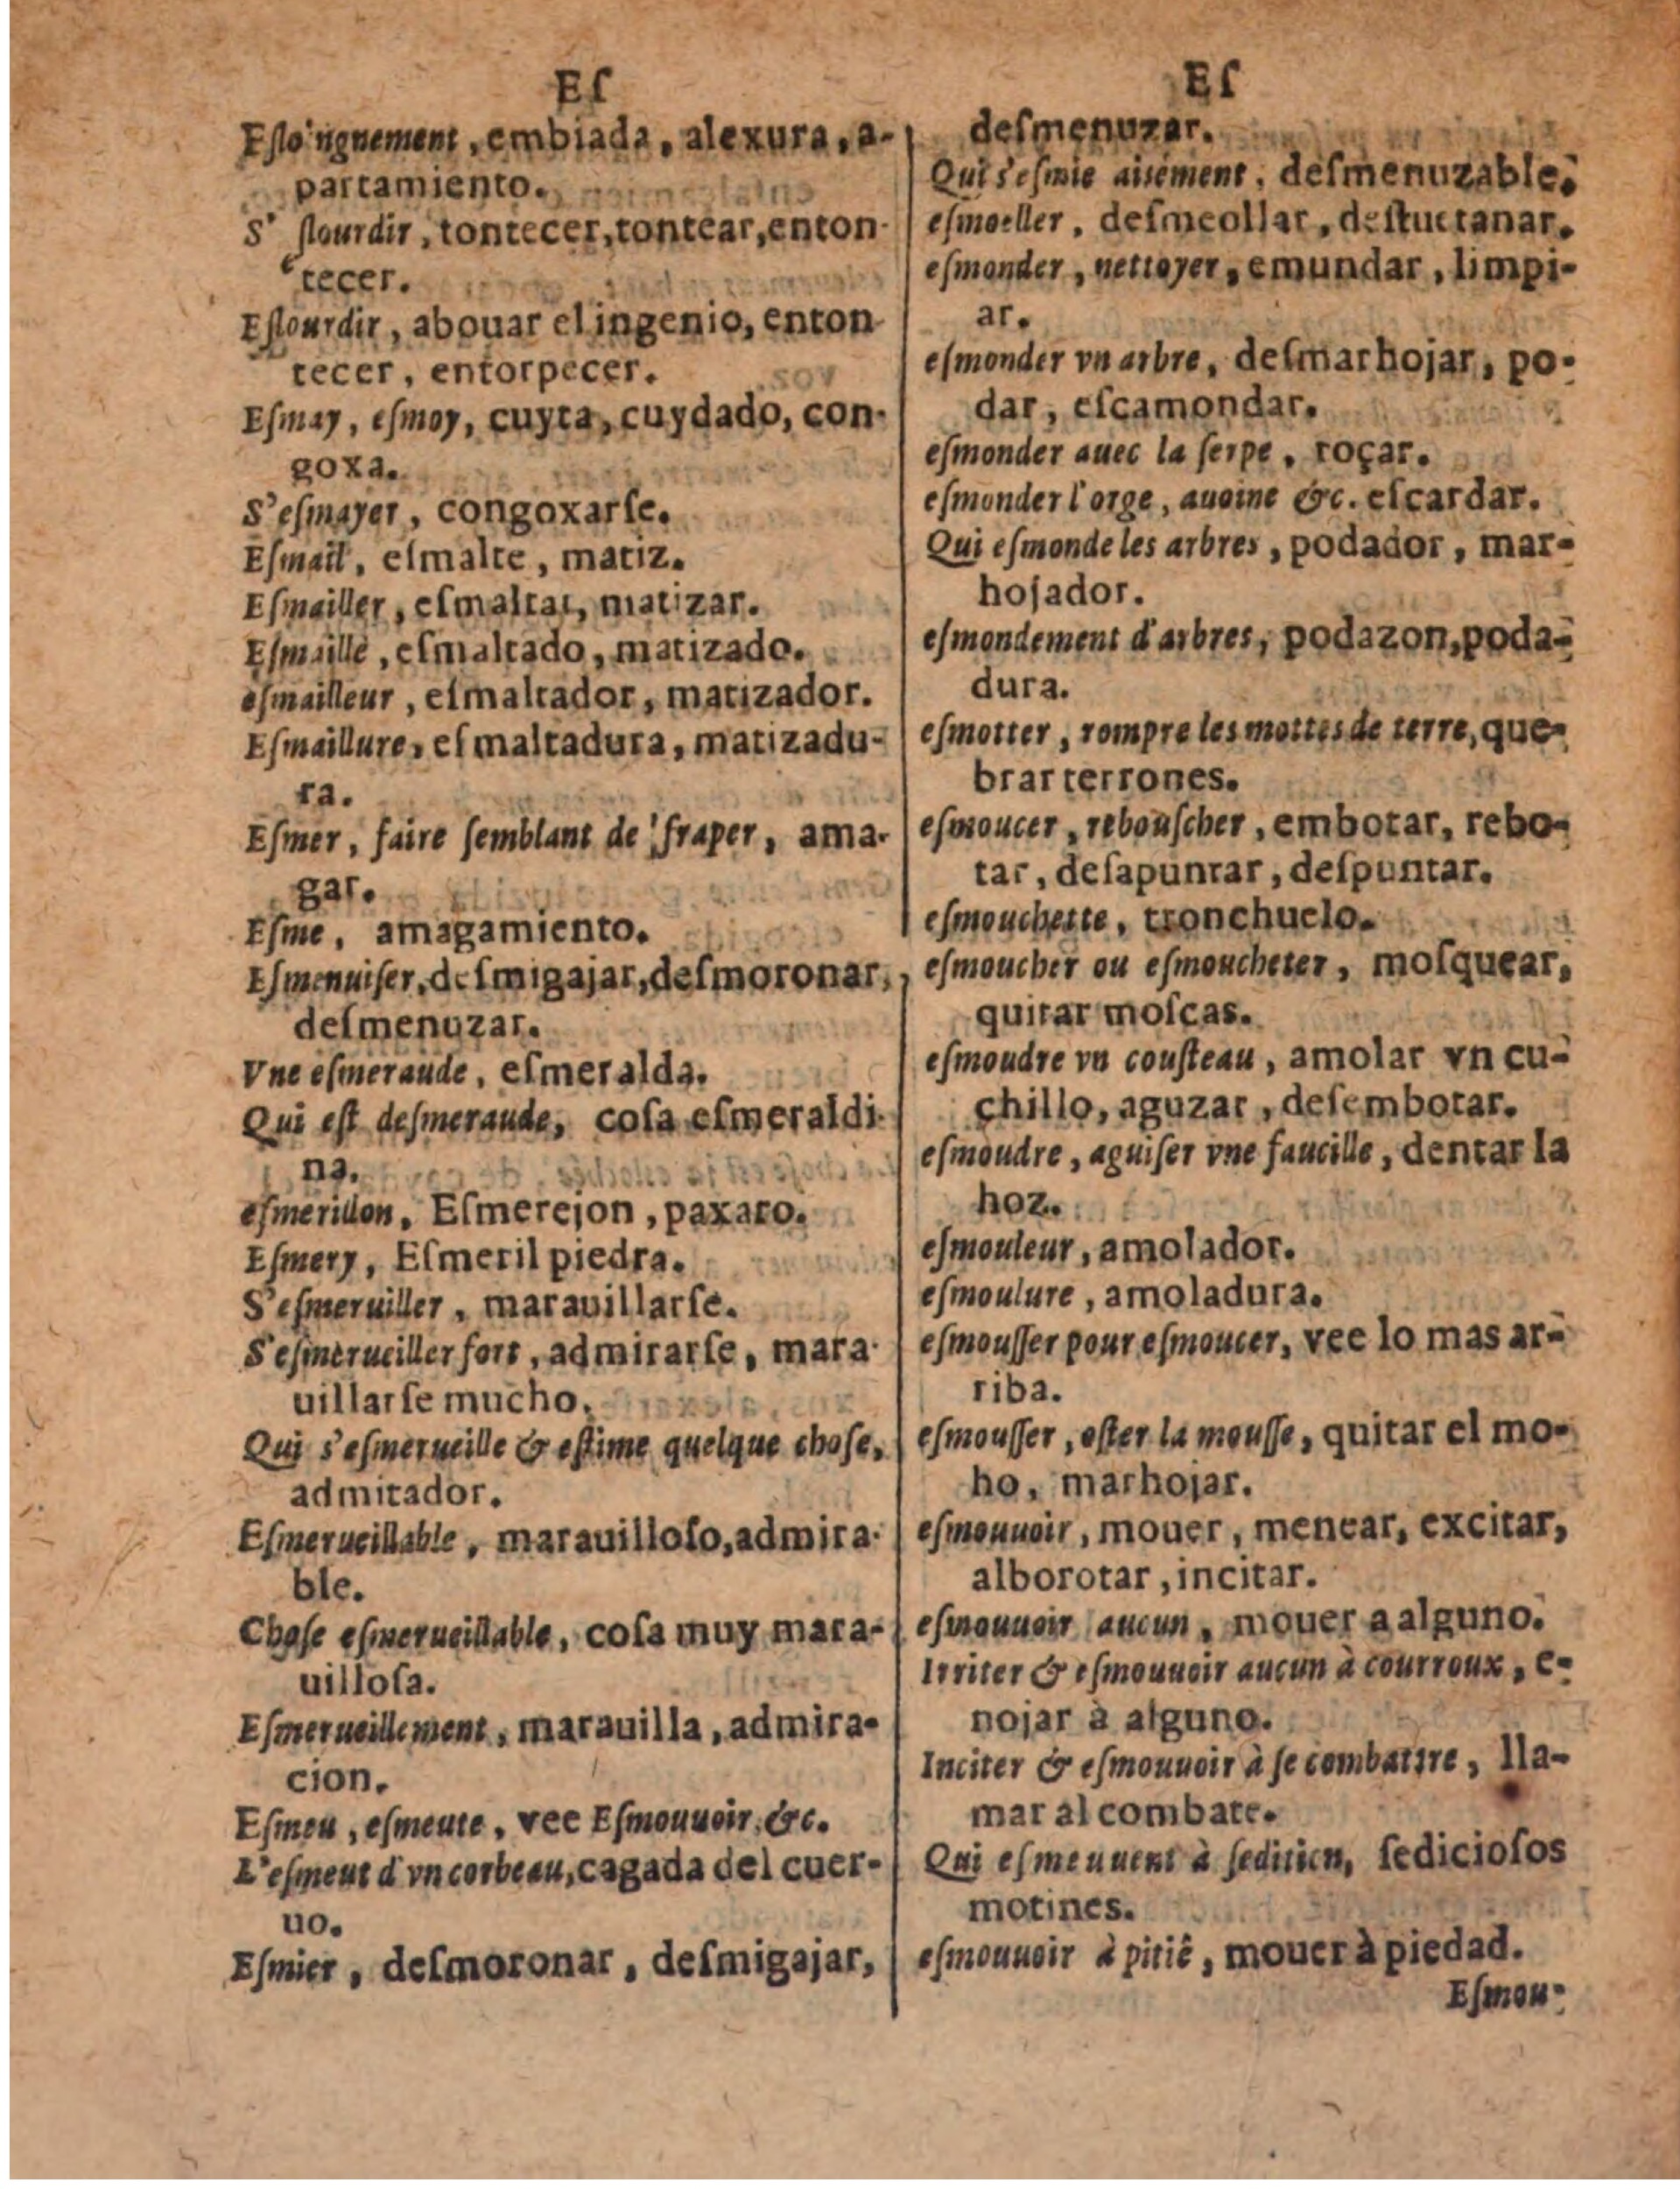 Eſ
Eſlo'ngnement, embiada, alexura, a-
partamiento.
S' ſlourdir, tontecer, tontear, enton-
e tecer.
Eſlourdir, abouar el ingenio, enton-
tecer, entorpecer.
Eſmay, eſmoy, cuyta, cuydado, con-
goxa.
S'eſmayer, congoxarſe.
Eſmail, eſmalte, matiz.
Eſmailler, eſmaltar, matizar.
Eſmaillè, eſmaltado, matizado.
eſmailleur, eſmaltador, matizador.
Eſmaillure, eſmaltadura, matizadu-
ra.
Eſmer, faire ſemblant de fraper, ama-
gar.
Eſme, amagamiento.
Eſmenuiſer, deſmigajar, deſmoronar,
deſmenuzar.
Vne eſmeraude, eſmeralda.
Qui eſt deſmeraude, coſa eſmeraldi-
na.
eſmerillon, Eſmerejon, paxaro.
Eſmery, Eſmeril piedra.
S'eſmeruiller, marauillarſe.
S'eſmerueiller fort, admirarſe, mara-
uillarſe mucho.
Qui s'eſmerueille & eſtime quelque choſe,
admitador.
Eſmerueillable, marauilloſo, admira-
ble.
Choſe eſmerueillable, coſa muy mara-
uilloſa.
Eſmerueillement, marauilla, admira-
cion.
Eſmeu, eſmeute, vee Eſmouuoir, &c.
L'eſmeut d'vn corbeau, cagada del cuer-
uo.
Eſmier, deſmoronar, deſmigajar,
Eſ
deſmenuzar.
Qui s'eſmie aisément, deſmenuzable.
eſmoeller, deſmeollar, deſtuetanar.
eſmonder, nettoyer, emundar, limpi-
ar.
eſmonder vn arbre, deſmarhojar, po-
dar, eſcamondar.
eſmonder auec la ſerpe, roçar.
eſmonder l'orge, auoine &c. eſcardar.
Qui eſmonde les arbres, podador, mar-
hojador.
eſmondement d'arbres, podazon, poda-
dura.
eſmotter, rompre les mottes de terre, que-
brar terrones.
eſmoucer, rebouſcher, embotar, rebo-
tar, deſapuntar, deſpuntar.
eſmouchette, tronchuelo.
eſmoucher ou eſmoucheter, moſquear,
quitar moſcas.
eſmoudre vn couſteau, amolar vn cu-
chillo, aguzar, deſembotar.
eſmoudre, aguiſer vne faucille, dentar la
hoz.
eſmouleur, amolador.
eſmoulure, amoladura.
eſmouſſer pour eſmoucer, vee lo mas ar-
riba.
eſmouſſer, oſter la mouſſe, quitar el mo-
ho, marhojar.
eſmouuoir, mouer, menear, excitar,
alborotar, incitar.
eſmouuoir aucun, mouer a alguno.
Irriter & eſmouuoir aucun à courroux, e-
nojar à alguno.
Inciter & eſmouuoir à ſe combattre, lla-
mar al combate.
Qui eſmeuuent à ſedition, ſedicioſos
motines.
eſmouuoir à pitiê, mouer à piedad.
Eſmou-